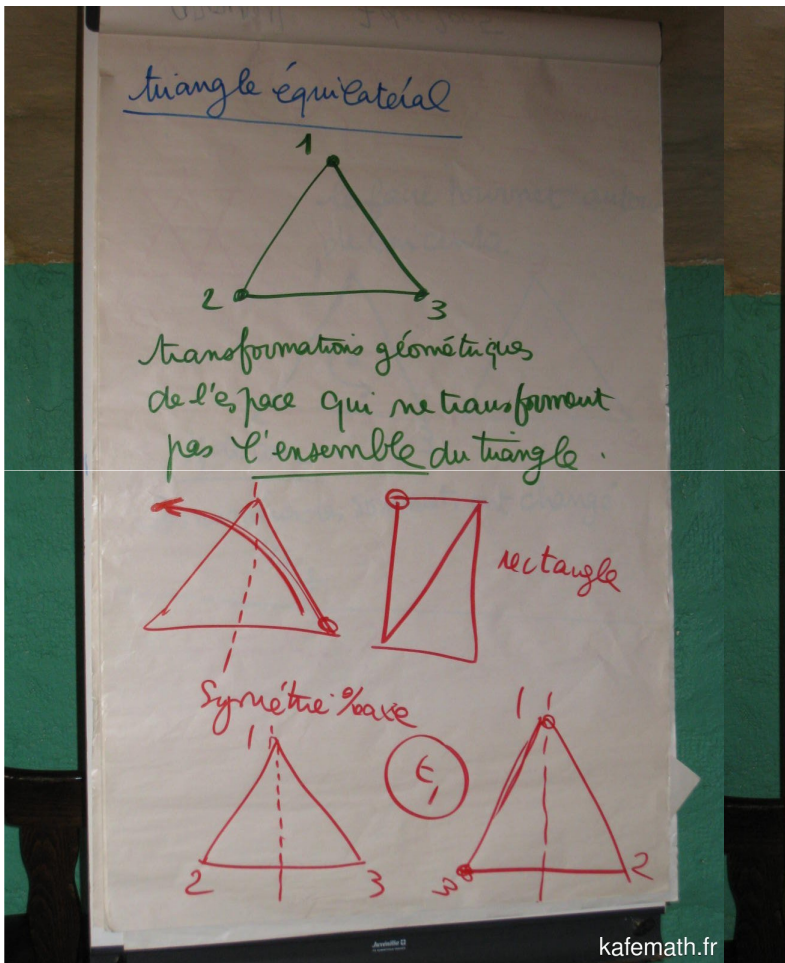 triangle équilatéral
1
2
3
transformations géométriques
de l'espace qui ne transforment
pas l'ensemble du triangle.
rectangle
Symétrie %axe
1
2
3
t1
1
3
2
kafemath.fr